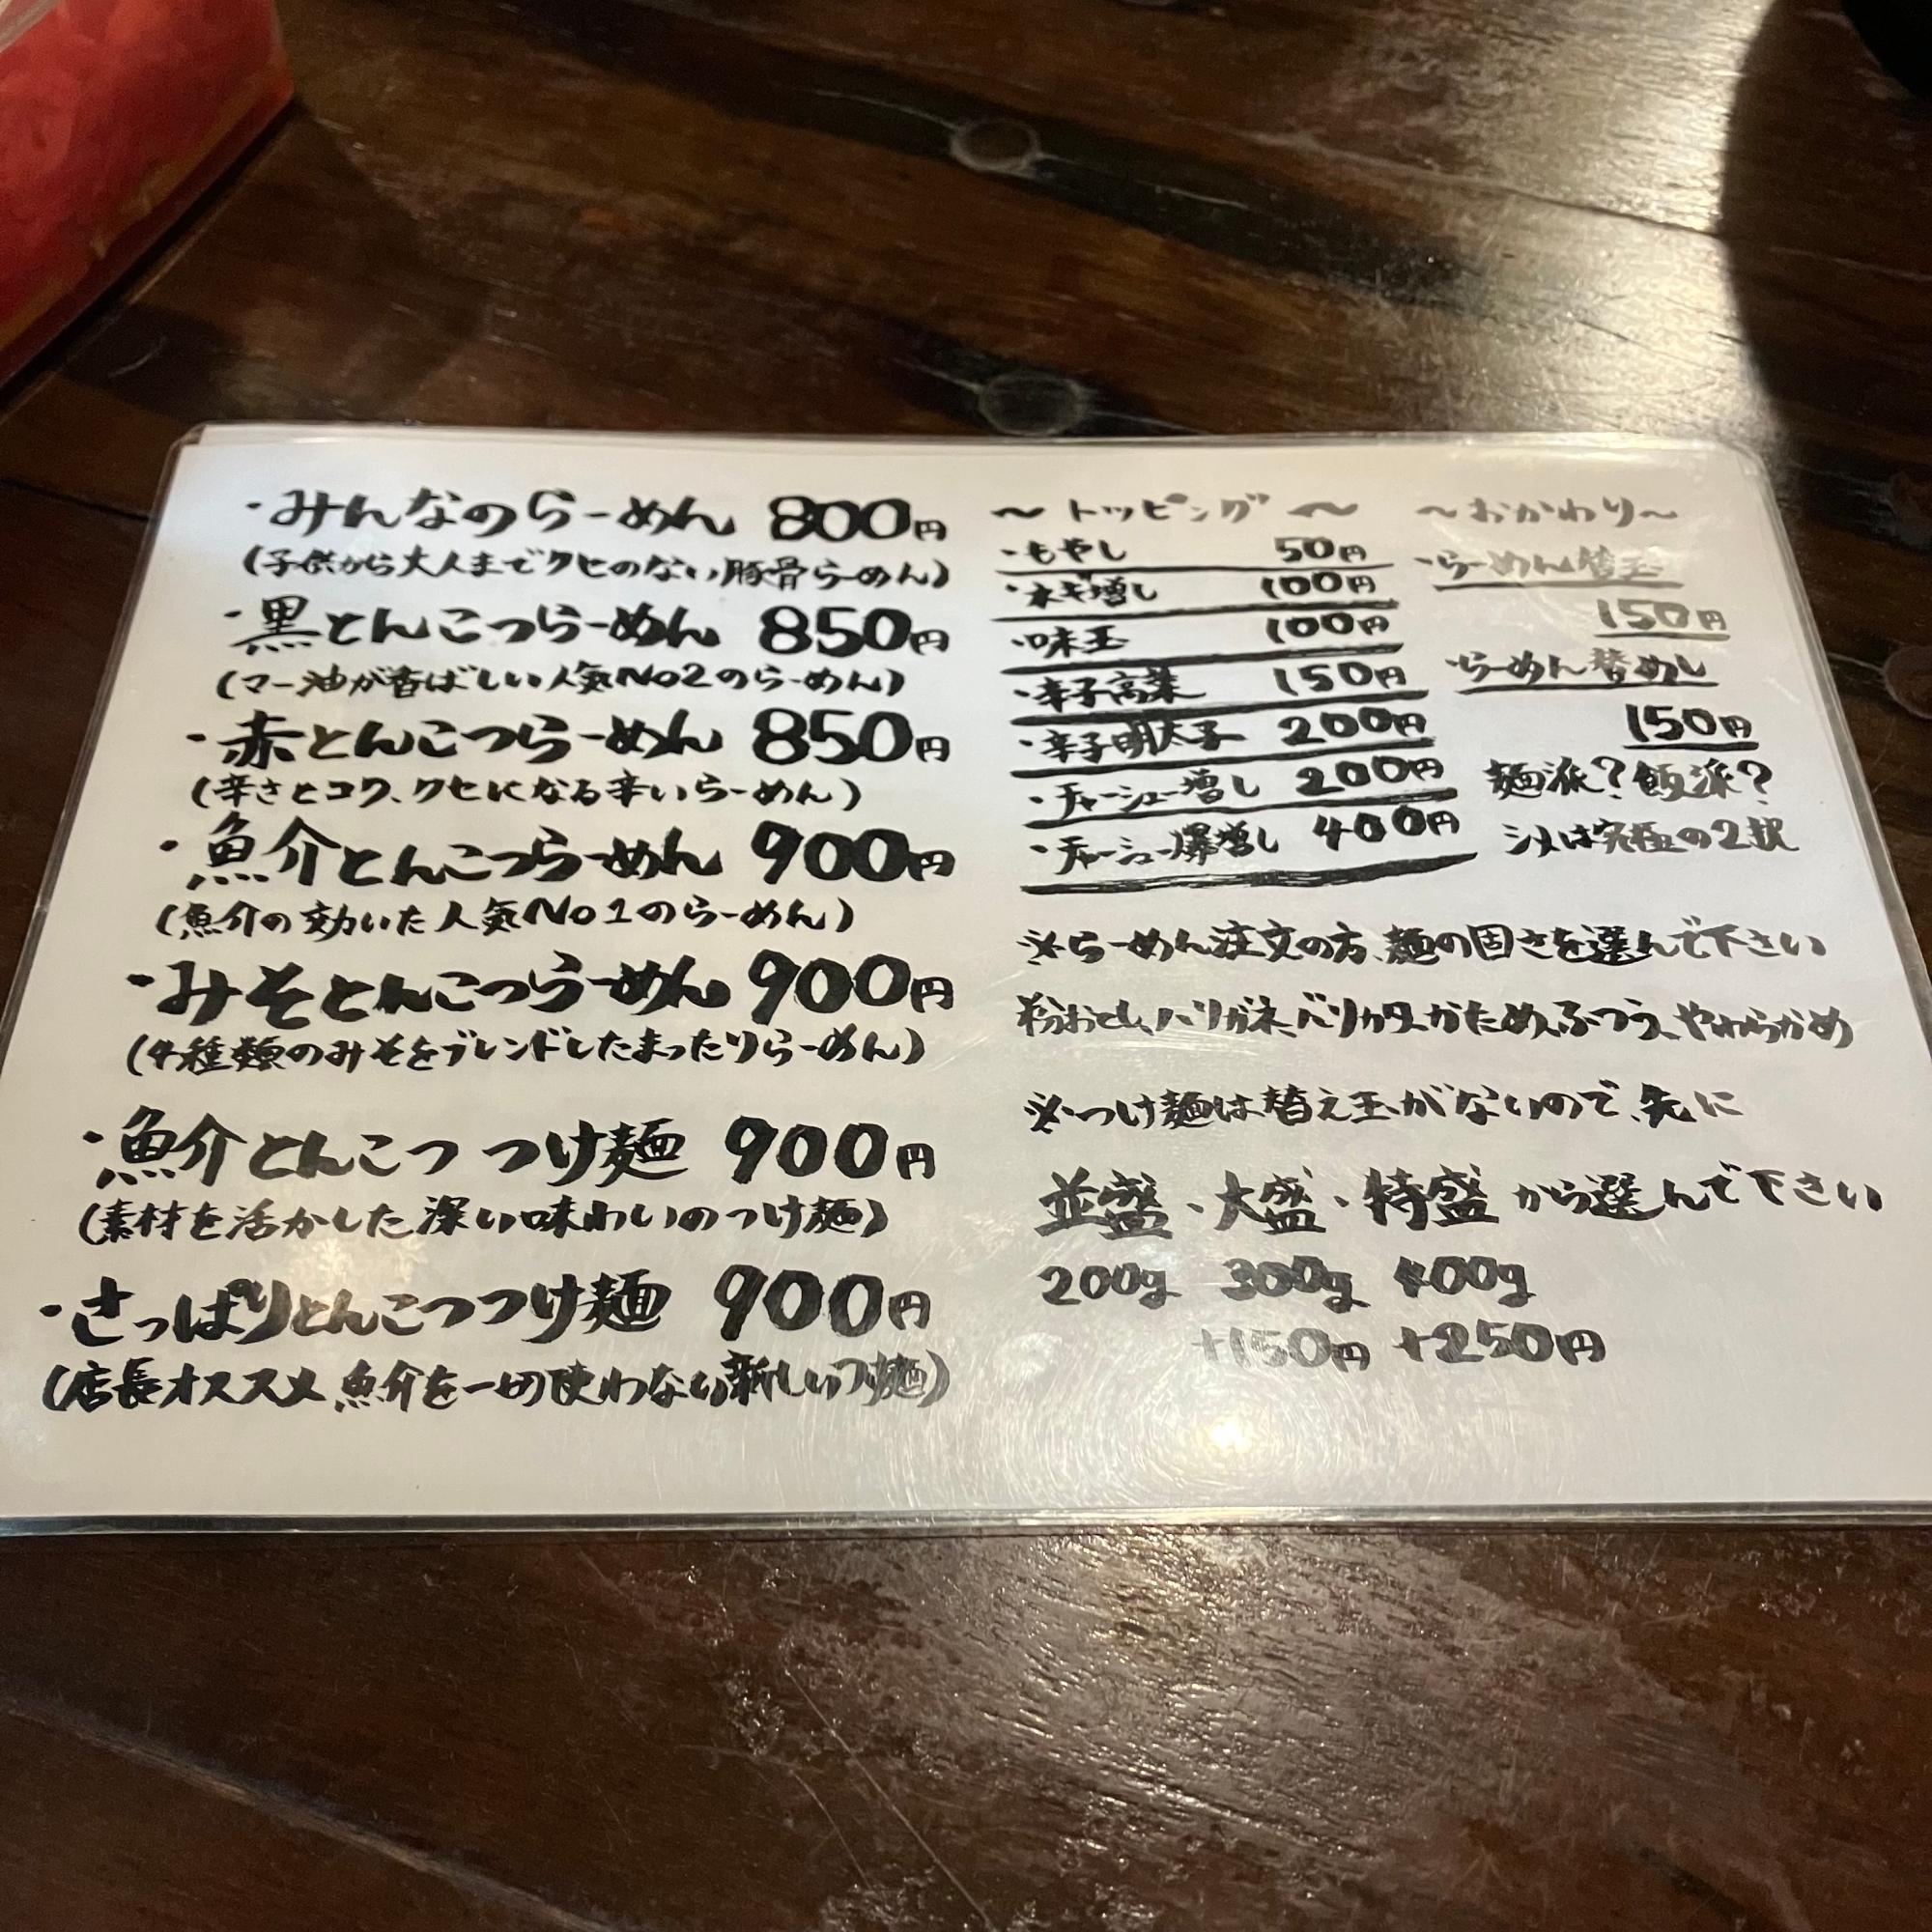 ・みんなのらーめん 800円
(子供から大人までクセのない豚骨らーめん)
・黒とんこつらーめん 850円
(マー油が香ばしい人気No2のらーめん)
・赤とんこつらーめん 850円
(辛さとコク、クセになる辛いらーめん)
・魚介とんこつらーめん 900円
(魚介の効いた人気No1のらーめん)
・みそとんこつらーめん 900円
(4種類のみそをブレンドしたまったりらーめん)
・魚介とんこつ つけ麺 900円
(素材を活かした深い味わいのつけ麺)
・さっぱりとんこつつけ麺 900円
(店長オススメ 魚介を一切使わない新しいつけ麺)
〜トッピング〜
・もやし 50円
・ネギ増し 100円
・味玉 100円
・辛子高菜 150円
・辛子明太子 200円
・チャーシュー増し 200円
・チャーシュー爆増し 400円
〜おかわり〜
・らーめん替玉
150円
・らーめん替めし
150円
麺派?飯派?
シメは究極の2択
※らーめん注文の方、麺の固さを選んで下さい
粉おとし、ハリガネ、バリカタ、かため、ふつう、やわらかめ
※つけ麺は替え玉がないので、先に
並盛・大盛・特盛から選んで下さい
200g 300g 400g
+150円 +250円